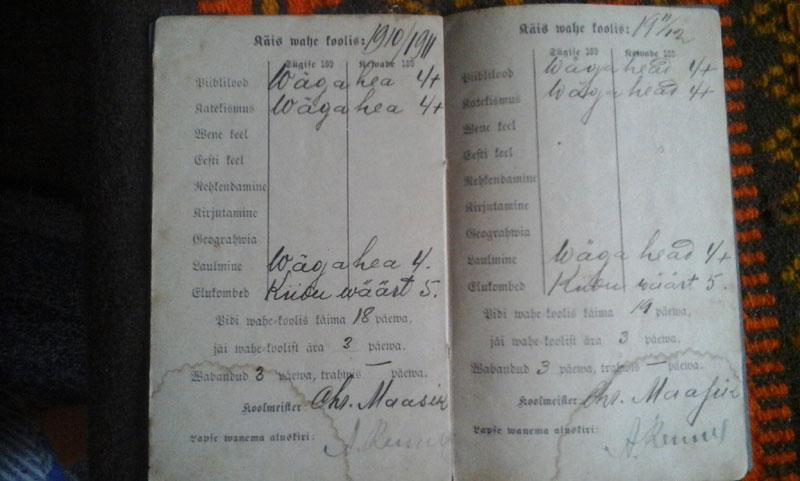 Käis wahe koolis: 1910/1911
Sügise 190 Kewade 190
Piiblilood Wäga hea 4+
Katekismus Wäga hea 4+
Wene keel
Eesti keel
Rehkendamine
Kirjutamine
Geograhwia
Laulmine Wäga hea 4.
Elukombed Kiidu wäärt 5.
Pidi wahe-koolis käima 18 päewa,
jäi wahe-koolist ära 3 päewa.
Wabandud 3 päewa, trahwis — päewa.
Koolmeister: Chr. Maasik
Lapse wanema aluskiri:
Käis wahe koolis: 1911/12
Sügise 190 Kewade 190
Piiblilood Wäga head 4+
Katekismus Wäga head 4+
Wene keel
Eesti keel
Rehkendamine
Kirjutamine
Geograhwia
Laulmine Wäga head 4+
Elukombed Kiidu wäärt 5.
Pidi wahe-koolis käima 19 päewa,
jäi wahe-koolist ära 3 päewa.
Wabandud 3 päewa, trahwis — päewa.
Koolmeister: Chr. Maasik
Lapse wanema aluskiri: